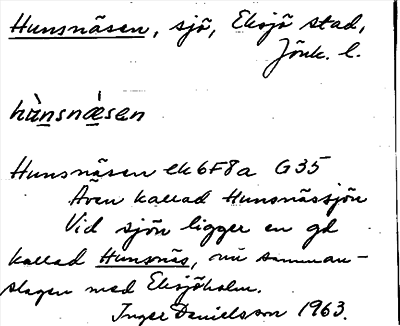 Hunsnäsen, sjö, Eksjö stad,
Jönk. l.
hùnsnǽsen
Hunsnäsen ek 6F8a G35
Även kallad Hunsnässjön
Vid sjön ligger en gd
kallad Hunsnäs, nu samman-
slagen med Eksjöholm.
Inger Danielsson 1963.